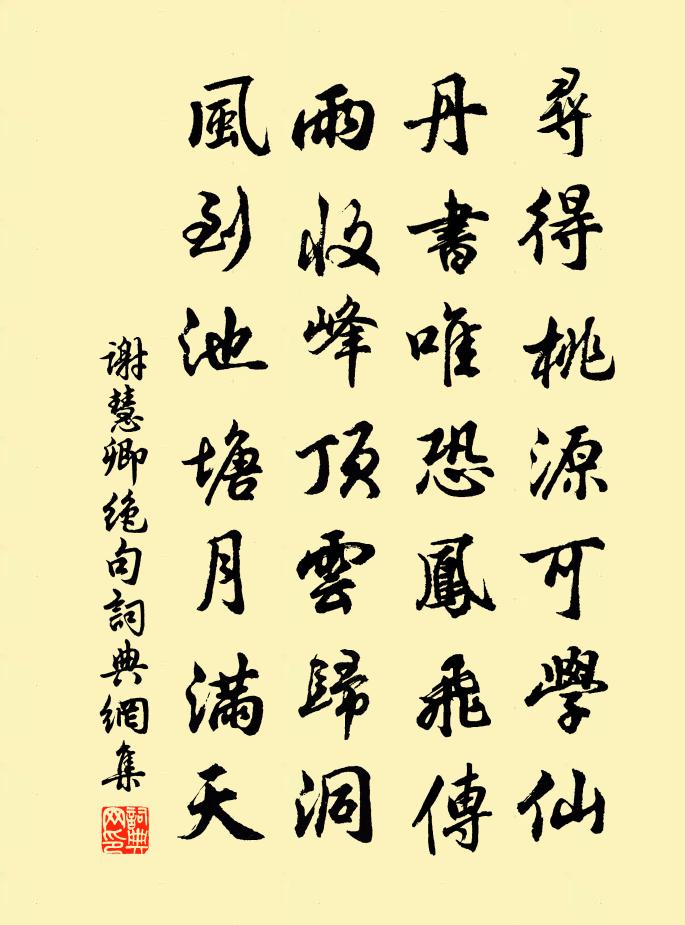 尋得桃源可學仙
丹書唯恐鳳飛傳
雨收峰頂雲歸洞
風到池塘月滿天
谢慧卿绝句詞典網集
詞典网印